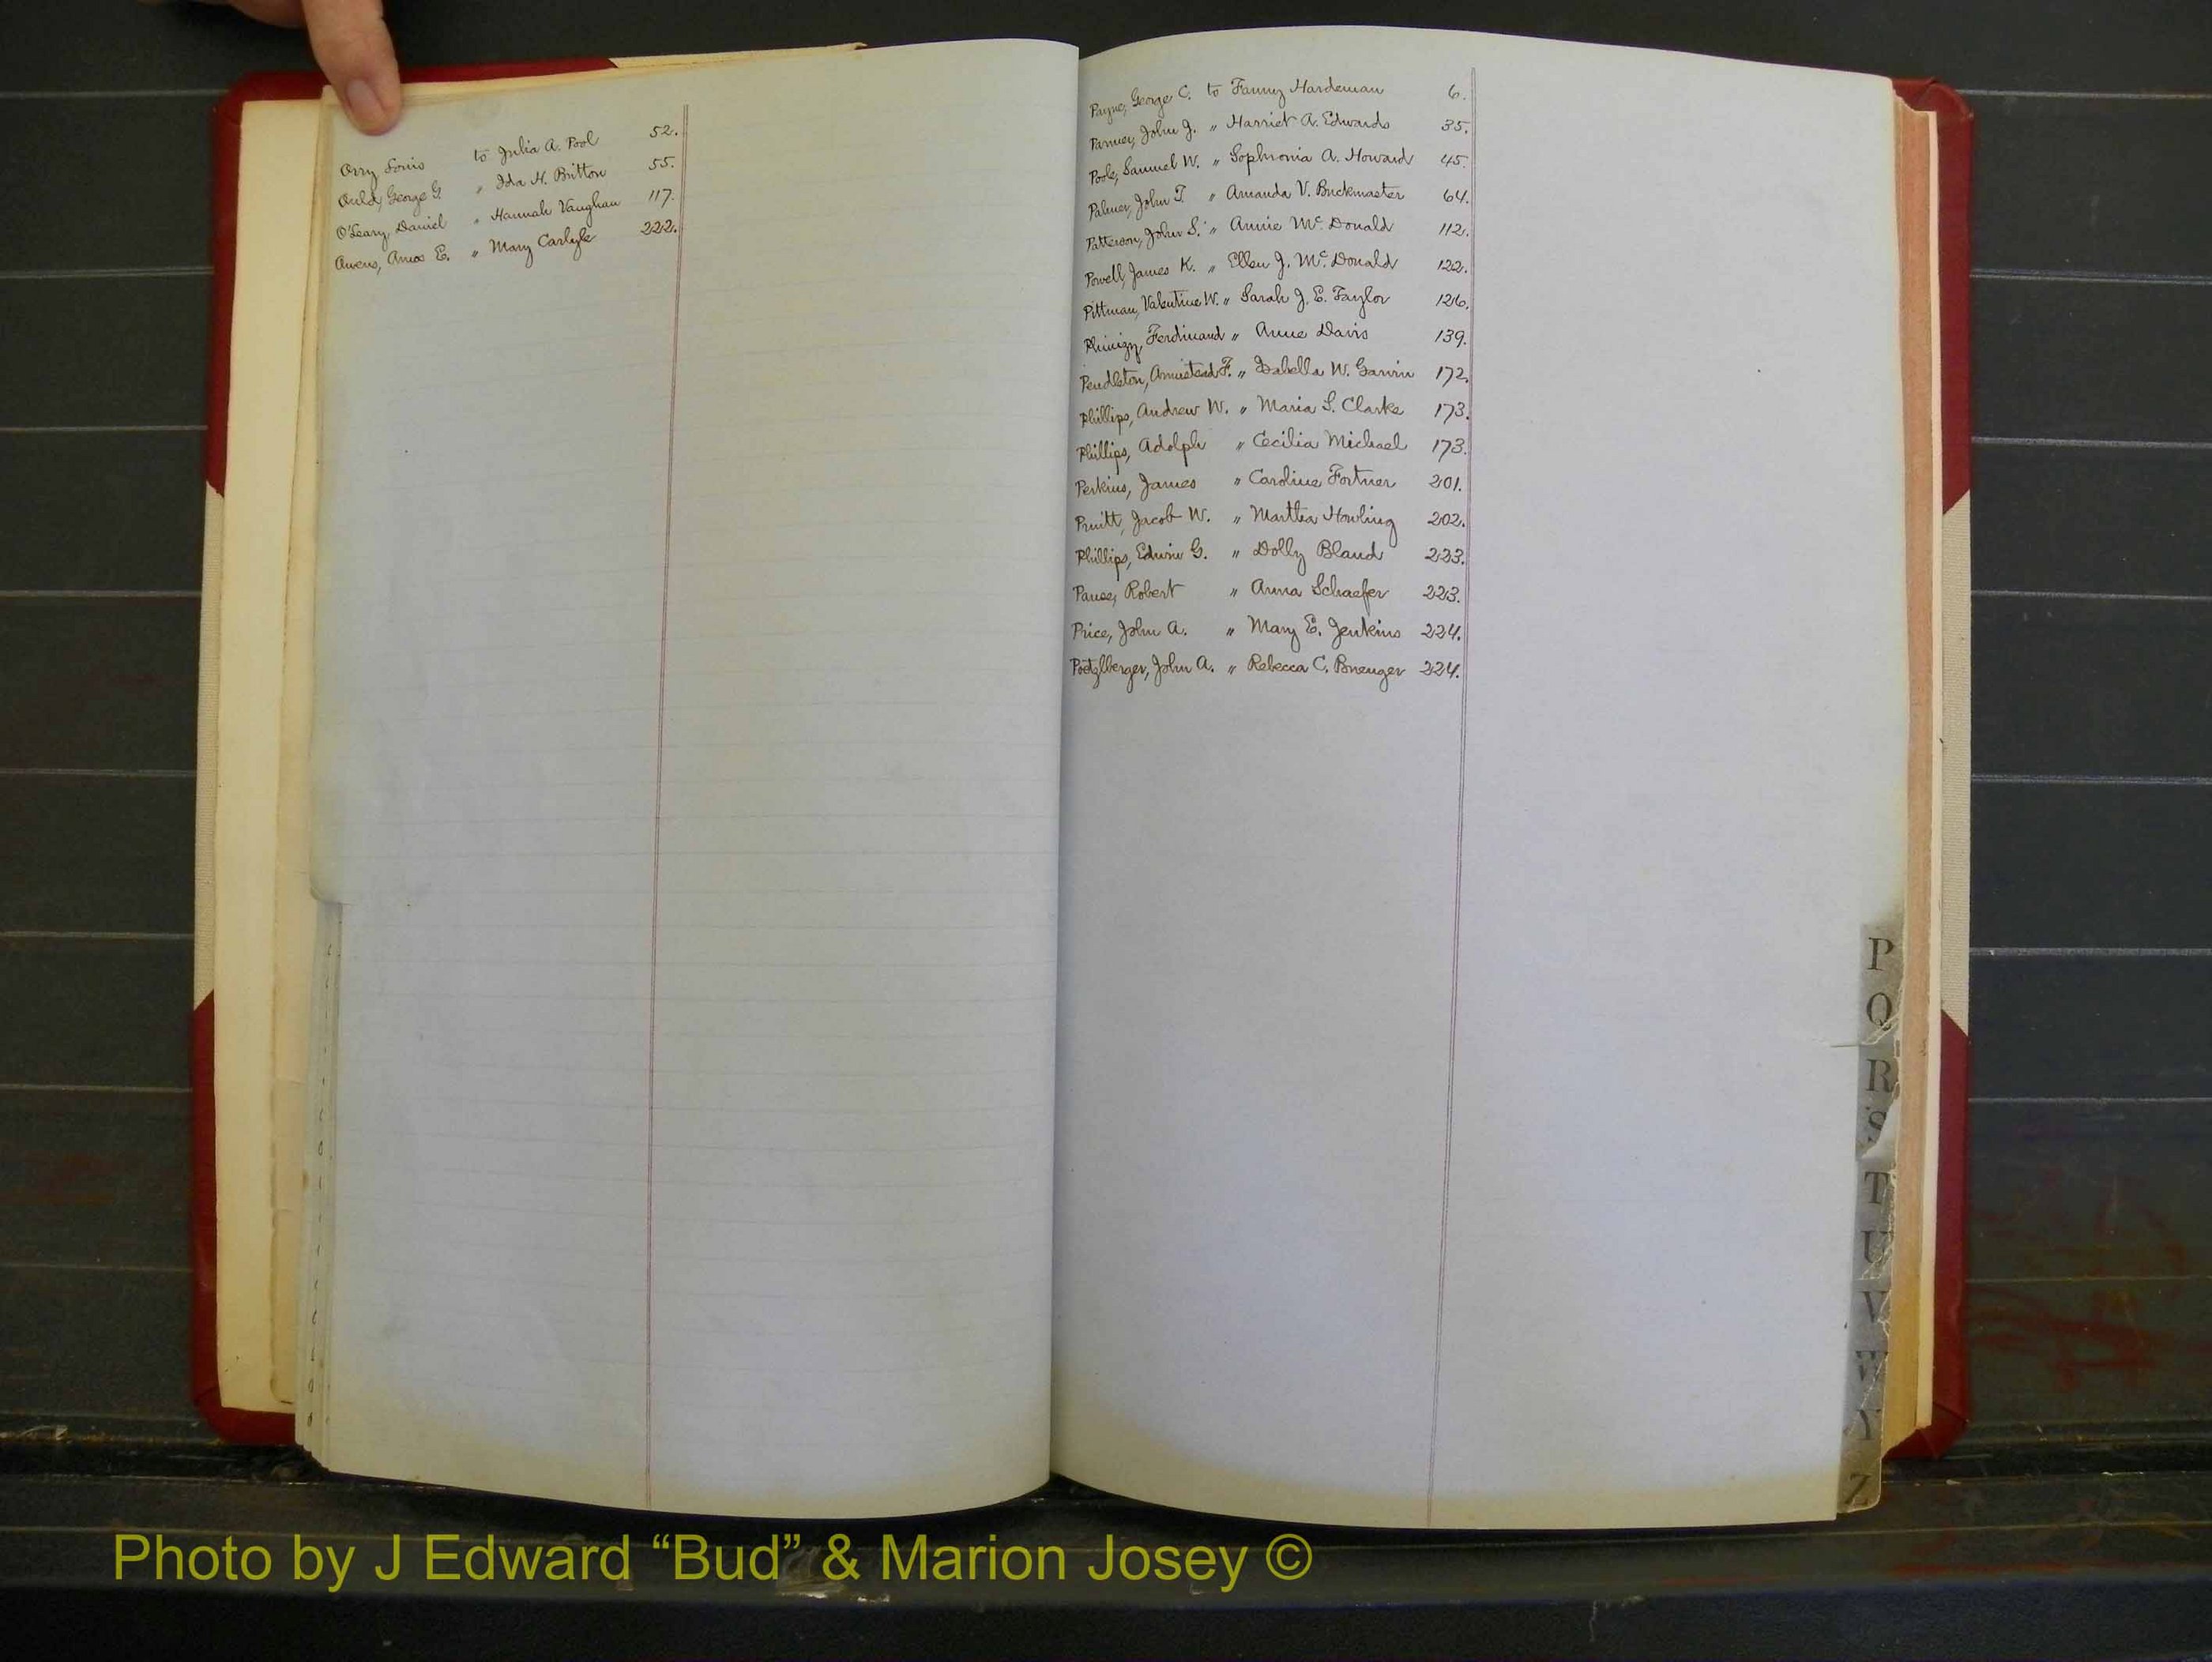 Orry Louis to Julia A. Pool 52.
Auld, George G. " Ida H. Britton 55.
O'Leary, Daniel " Hannah Vaughan 117.
Owens, Amos E. " Mary Carlyle 222.
Payne, George C. to Fanny Hardeman 6.
Parmer, John J. " Harriet A. Edwards 35.
Poole, Samuel W. " Sophronia A. Howard 45.
Palmer, John T. " Amanda V. Buckmaster 64.
Patterson, John S. " Annie McDonald 112.
Powell, James K. " Ellen J. McDonald 122.
Pittman, Valentine W. " Sarah J. E. Taylor 126.
Phinizy, Ferdinand " Anne Davis 139.
Pendleton, Armistead F. " Isabella W. Garvin 172.
Phillips, Andrew W. " Maria S. Clarke 173.
Phillips, Adolph " Cecilia Michael 173.
Perkins, James " Caroline Fortner 201.
Pruitt, Jacob W. " Martha Howling 202.
Phillips, Edwin G. " Dolly Bland 223.
Pause, Robert " Anna Schaefer 223.
Price, John A. " Mary E. Jenkins 224.
Poetzlberger, John A. " Rebecca C. 224.
P
Q
R
S
T
U
V
W
Y
Z
Photo by J Edward “Bud” & Marion Josey ©